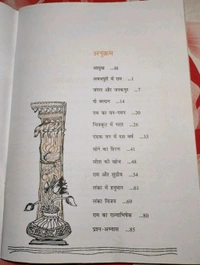 अनुक्रम
आमुख ...iii
अवधपुरी में राम ...1
जंगल और जनकपुर ...7
दो वरदान ...14
राम का वन-गमन ...20
चित्रकूट में भरत ...28
दंडक वन में दस वर्ष ...35
सोने का हिरण ...41
सीता की खोज ...48
राम और सुग्रीव ...54
लंका में हनुमान ...61
लंका विजय ...69
राम का राज्याभिषेक ...80
प्रश्न-अभ्यास ...85